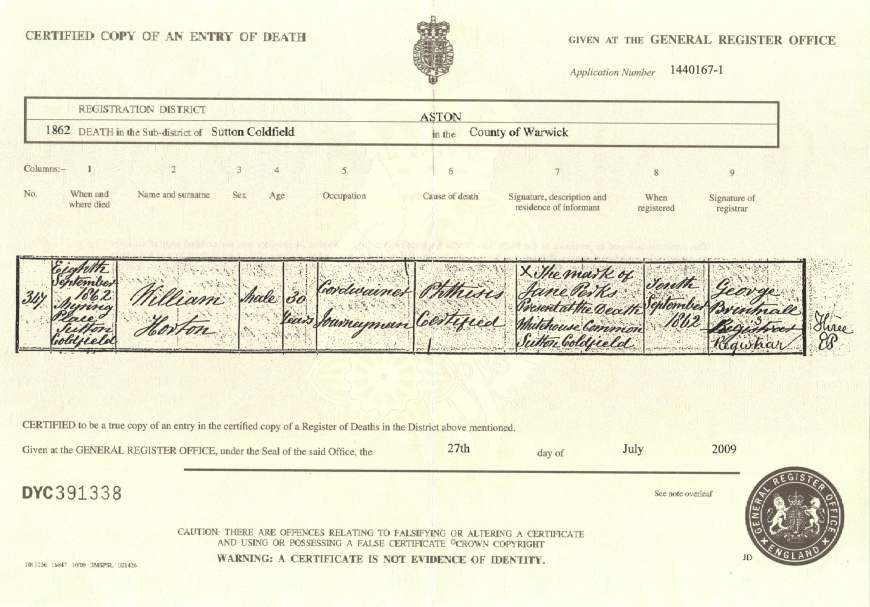 CERTIFIED COPY OF AN ENTRY OF DEATH
GIVEN AT THE GENERAL REGISTER OFFICE
Application Number 1440167-1
REGISTRATION DISTRICT
ASTON
1862 DEATH in the Sub-district of Sutton Coldfield in the County of Warwick
Columns:- 1 2 3 4 5 6 7 8 9
No. When and where died Name and surname Sex Age Occupation Cause of death Signature, description and residence of informant When registered Signature of registrar
347
Eighth
September
1862
Place
Sutton
Coldfield
William
Horton
Male
30
Years
Cordwainer
Journeyman
Phthisis
Certified
X The mark of
Jane Perks
Present at the Death
Whitehouse Common
Sutton Coldfield
Tenth
September
1862
George
Registrar
Three
CERTIFIED to be a true copy of an entry in the certified copy of a Register of Deaths in the District above mentioned.
Given at the GENERAL REGISTER OFFICE, under the Seal of the said Office, the 27th day of July 2009
DYC391338
See note overleaf
GENERAL REGISTER OFFICE
ENGLAND
CAUTION: THERE ARE OFFENCES RELATING TO FALSIFYING OR ALTERING A CERTIFICATE
AND USING OR POSSESSING A FALSE CERTIFICATE ©CROWN COPYRIGHT
WARNING: A CERTIFICATE IS NOT EVIDENCE OF IDENTITY.
JD